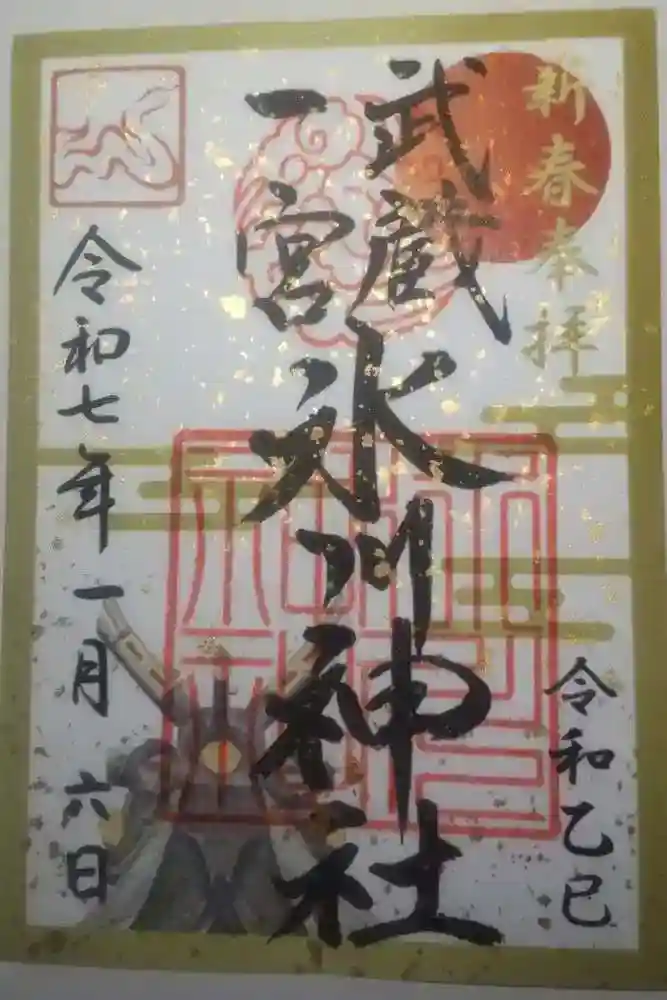 新春奉拝
令和乙巳
武蔵
一宮
氷川神社
令和七年一月六日